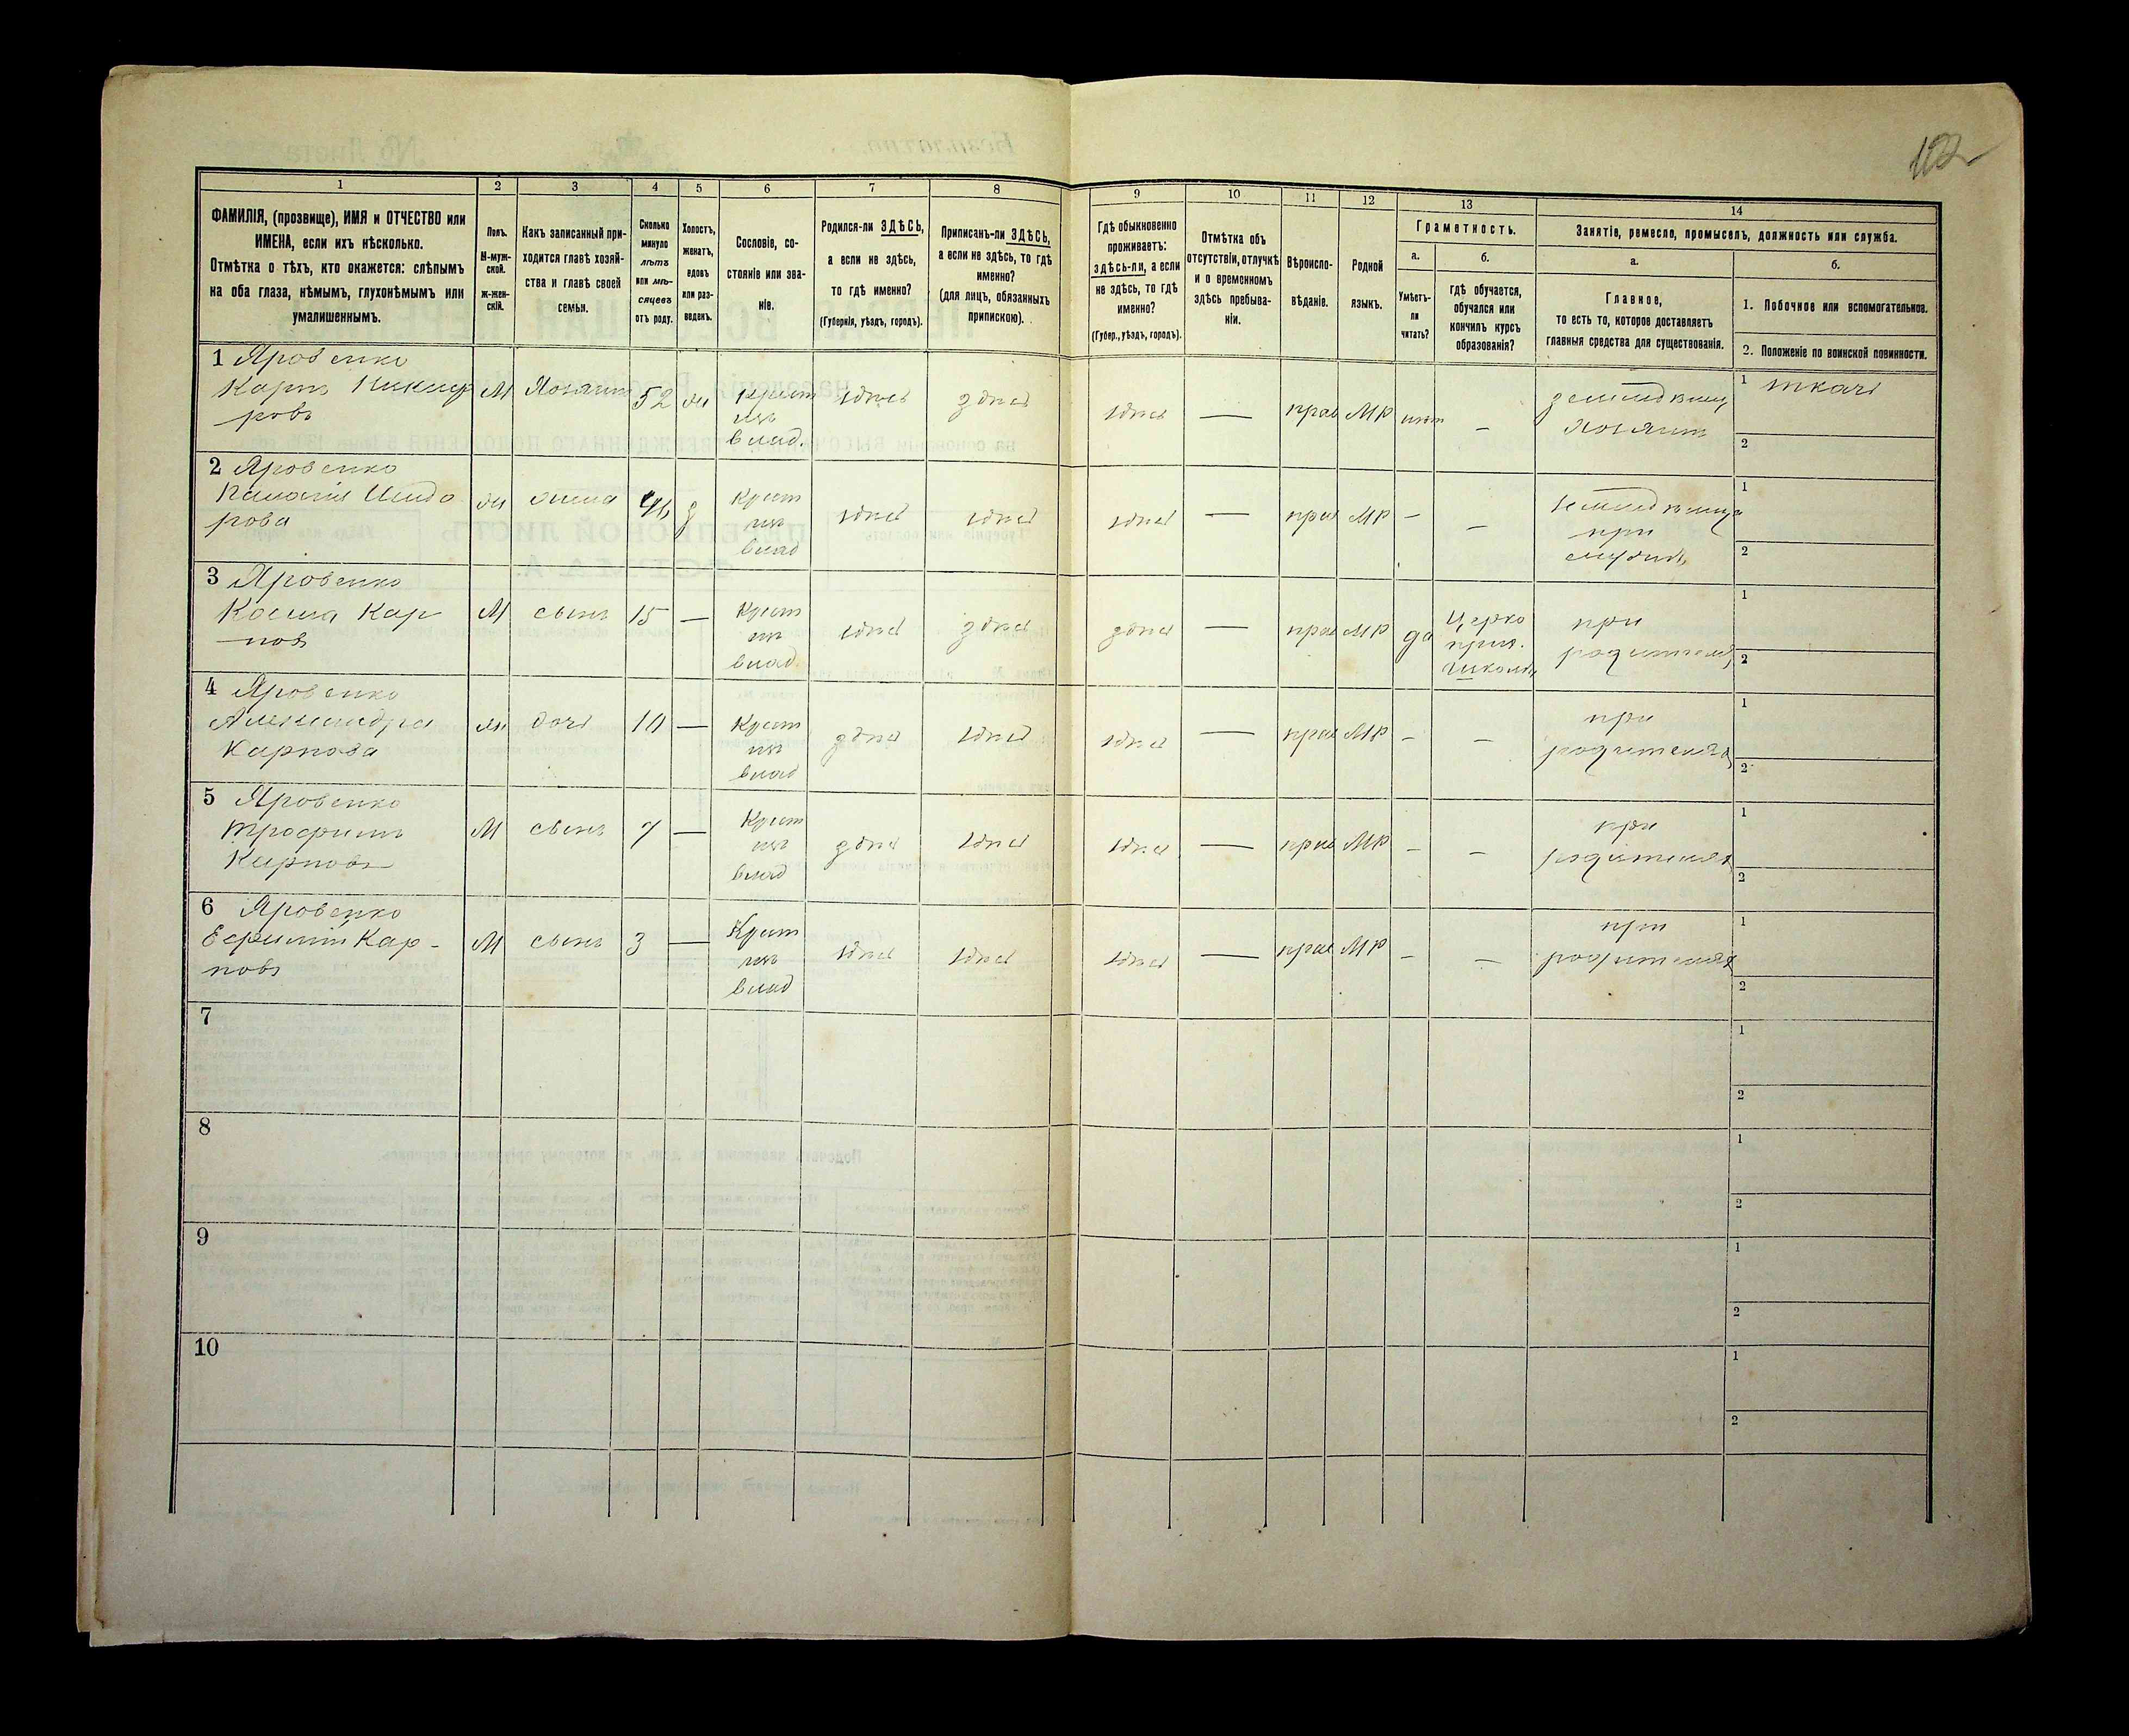 102
1 2 3 4 5 6 7 8 9 10 11 12 13 14
ФАМИЛІЯ, (прозвище), ИМЯ и ОТЧЕСТВО или
ИМЕНА, если ихъ нѣсколько.
Отмѣтка о тѣхъ, кто окажется: слѣпымъ
на оба глаза, нѣмымъ, глухонѣмымъ или
умалишеннымъ.
Полъ.
М-муж-
ской.
ж-жен-
скій.
Какъ записанный при-
ходится главѣ хозяй-
ства и главѣ своей
семьи.
Сколько
минуло
лѣтъ
или мѣ-
сяцевъ
отъ роду.
Холостъ,
женатъ,
вдовъ
или раз-
веденъ.
Сословіе, со-
стояніе или зва-
ніе.
Родился-ли ЗДѢСЬ,
а если не здѣсь,
то гдѣ именно?
(Губернія, уѣздъ, городъ).
Приписанъ-ли ЗДѢСЬ,
а если не здѣсь, то гдѣ
именно?
(для лицъ, обязанныхъ
припискою).
Гдѣ обыкновенно
проживаетъ:
здѣсь-ли, а если
не здѣсь, то гдѣ
именно?
(Губер., уѣздъ, городъ).
Отмѣтка объ
отсутствіи, отлучкѣ
и о временномъ
здѣсь пребыва-
ніи.
Вѣроиспо-
вѣданіе.
Родной
языкъ.
Грамотность.
а.
Умѣетъ-
ли
читать?
б.
гдѣ обучается,
обучался или
кончилъ курсъ
образованія?
Занятіе, ремесло, промыселъ, должность или служба.
а.
Главное,
то есть то, которое доставляетъ
главныя средства для существованія.
б.
1. Побочное или вспомогательное.
2. Положеніе по воинской повинности.
1 Яровенко
Карпъ Никиф
ровъ
М
Хозяинъ
52
жн
крест
изъ
влад.
здѣсь
здѣсь
здѣсь
—
прав
МР
нѣт
—
землед
Хозяинъ
1 ткачъ
2
2 Яровенко
Палагія Исидо
рова
жн
жена
46
з
Крест
изъ
влад
здѣсь
здѣсь
здѣсь
—
прав
МР
—
—
землед
при
1
2
3 Яровенко
Косма Кар
повъ
М
сынъ
15
—
Крест
изъ
влад
здѣсь
здѣсь
здѣсь
—
прав
МР
да
Церко
прих.
школѣ
при
родителях
1
2
4 Яровенко
Александра
Карпова
жн
дочь
10
—
Крест
изъ
влад
здѣсь
здѣсь
здѣсь
—
прав
МР
—
—
при
родителях
1
2
5 Яровенко
Трофимъ
Карповъ
М
сынъ
7
—
Крест
изъ
влад
здѣсь
здѣсь
здѣсь
—
прав
МР
—
—
при
родителях
1
2
6 Яровенко
Ефимій Кар-
повъ
М
сынъ
3
—
Крест
изъ
влад
здѣсь
здѣсь
здѣсь
—
прав
МР
—
—
при
родителях
1
2
7
1
2
8
1
2
9
1
2
10
1
2